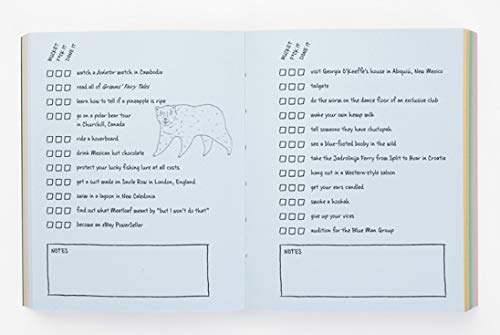 BUCKET
F*CK IT
DONE IT
watch a bokator match in Cambodia
read all of Grimms' Fairy Tales
learn how to tell if a pineapple is ripe
go on a polar bear tour
in Churchill, Canada
ride a hoverboard
drink Mexican hot chocolate
protect your lucky fishing lure at all costs
get a suit made on Savile Row in London, England
swim in a lagoon in New Caledonia
find out what Meatloaf meant by "but I won't do that"
become an eBay PowerSeller
NOTES
BUCKET
F*CK IT
DONE IT
visit Georgia O'Keeffe's house in Abiquiú, New Mexico
tailgate
do the worm on the dance floor of an exclusive club
make your own hemp milk
tell someone they have chutzpah
see a blue-footed booby in the wild
take the Jadrolinija Ferry from Split to Hvar in Croatia
hang out in a Western-style saloon
get your ears candled
smoke a hookah
give up your vices
audition for the Blue Man Group
NOTES